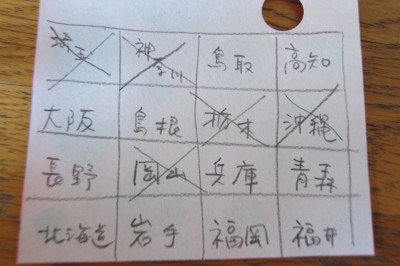 埼玉 神奈川 鳥取 高知
大阪 島根 栃木 沖縄
長野 岡山 兵庫 青森
北海道 岩手 福岡 福井